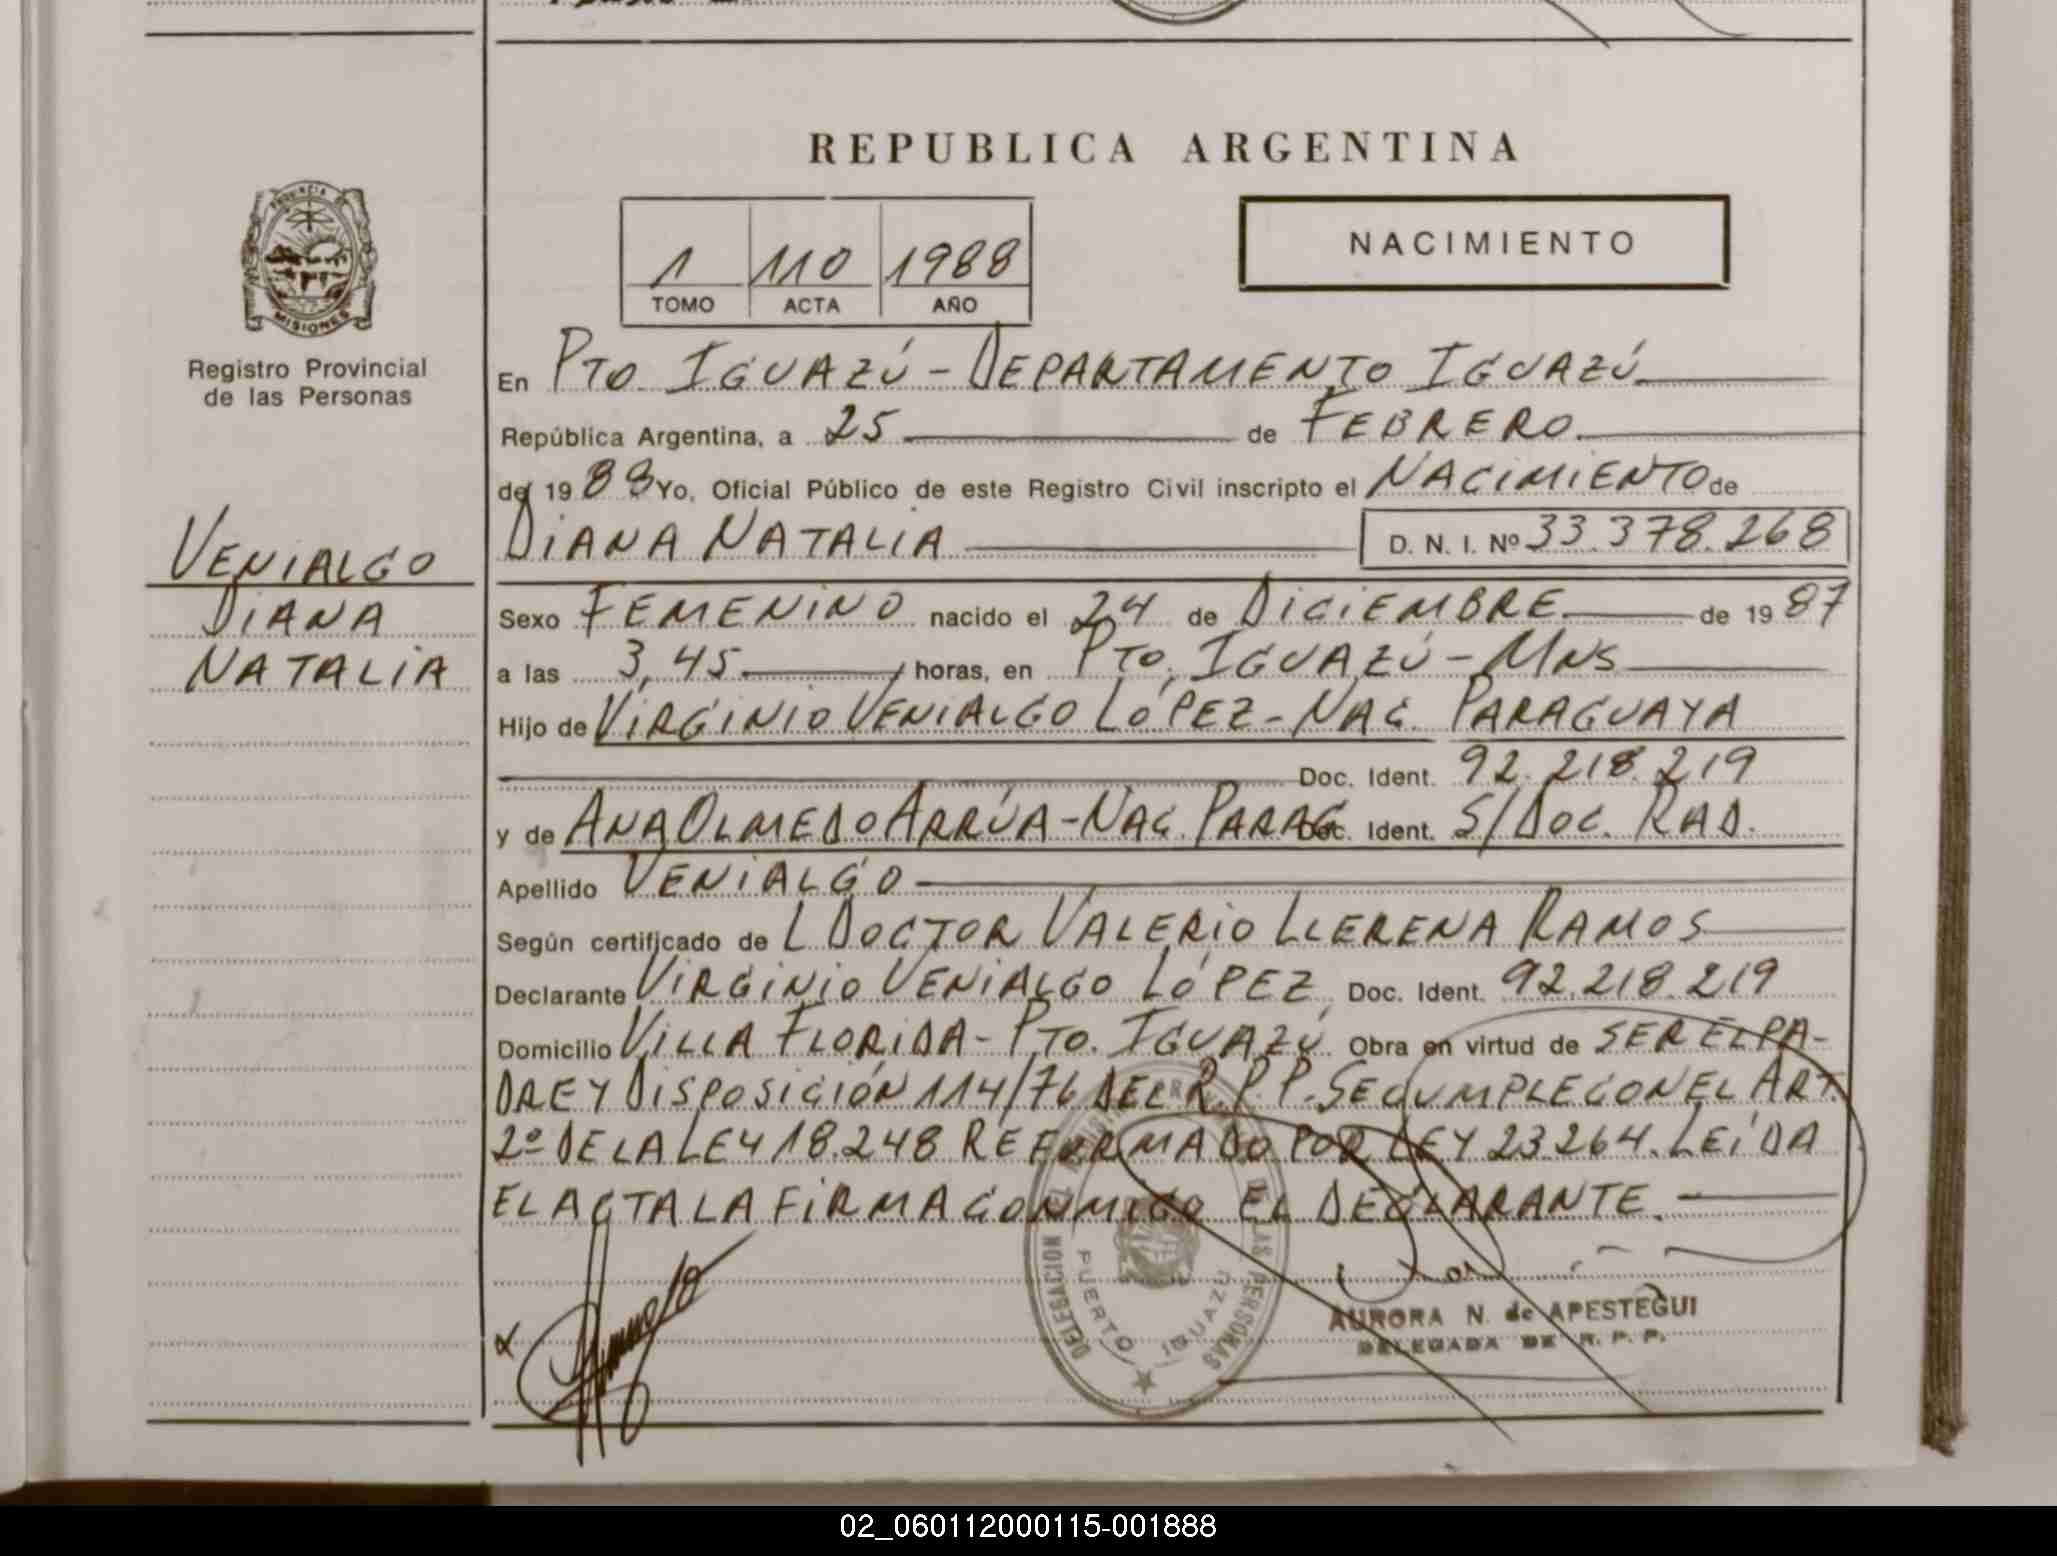 REPUBLICA ARGENTINA
PROVINCIA DE
MISIONES
Registro Provincial
de las Personas
VENIALGO
DIANA
NATALIA
1 110 1988
TOMO ACTA AÑO
NACIMIENTO
En PTO. IGUAZÚ - DEPARTAMENTO IGUAZÚ
República Argentina, a 25 de FEBRERO
de 1988 Yo, Oficial Público de este Registro Civil inscripto el NACIMIENTO de
DIANA NATALIA D. N. I. Nº 33.378.268
Sexo FEMENINO nacido el 24 de DICIEMBRE de 1987
a las 3,45 horas, en PTO. IGUAZÚ - MNS
Hijo de VIRGINIO VENIALGO LÓPEZ - NAC. PARAGUAYA
Doc. Ident. 92.218.219
y de ANA OLMEDO ARRÚA - NAC. PARAG Doc. Ident. S/DOC. RAD.
Apellido VENIALGO
Según certificado de L DOCTOR VALERIO LLERENA RAMOS
Declarante VIRGINIO VENIALGO LÓPEZ Doc. Ident. 92.218.219
Domicilio VILLA FLORIDA - PTO. IGUAZÚ Obra en virtud de SER EL PA-
DRE Y DISPOSICIÓN 114/76 DEL R.P.P. SE CUMPLE CON EL ART.
2º DE LA LEY 18.248 REFORMADO POR LEY 23264. LEÍDA
EL ACTA LA FIRMA CONMIGO EL DECLARANTE.
DELEGACION DEL REGISTRO PROVINCIAL DE LAS PERSONAS
PUERTO IGUAZU
AURORA N. de APESTEGUI
DELEGADA DE R. P. P.
02_060112000115-001888